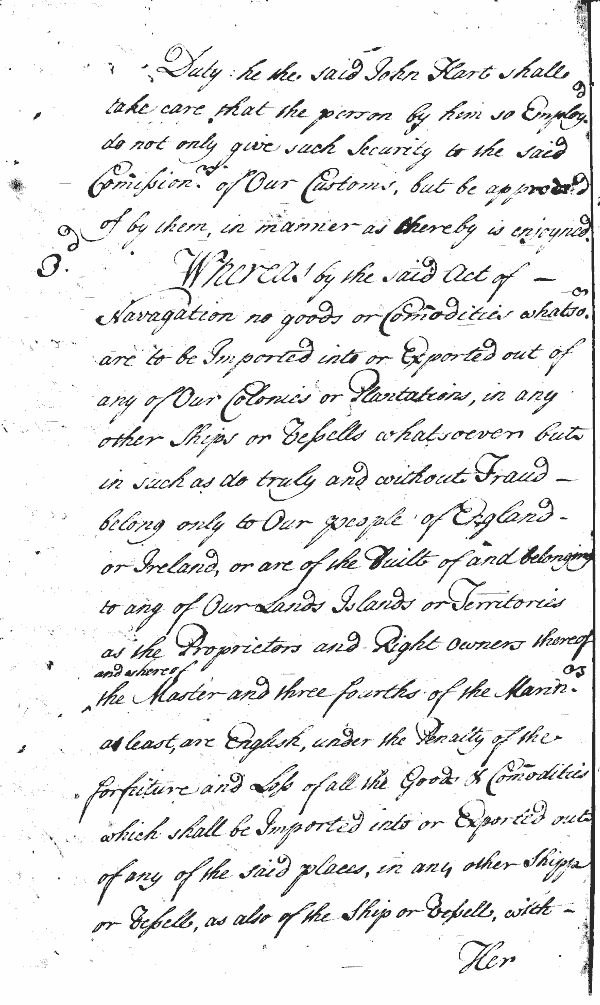 Duty he the said John Hart shall
take care that the person by him so Employ.d
do not only give such Security to the said
Comission.rs of Our Customs, but be approved
of by them, in manner as thereby is enjoyned.
3.d
Whereas by the said Act of —
Navagation no goods or Comodities whatso.r
are to be Imported into or Exported out of
any of Our Colonies or Plantations, in any
other Ships or Vessells whatsoever but
in such as do truly and without Fraud —
belong only to Our people of England -
or Ireland, or are of the Built of and belonging
to any of Our Lands Islands or Territories
as the Proprietors and Right Owners thereof
and whereof
the Master and three fourths of the Marin.rs
at least, are English, under the Penalty of the
forfeiture and Loss of all the Goods & Comodities
which shall be Imported into or Exported out
of any of the said places, in any other Shipp
or Vessell, as also of the Ship or Vessell, with —
Her